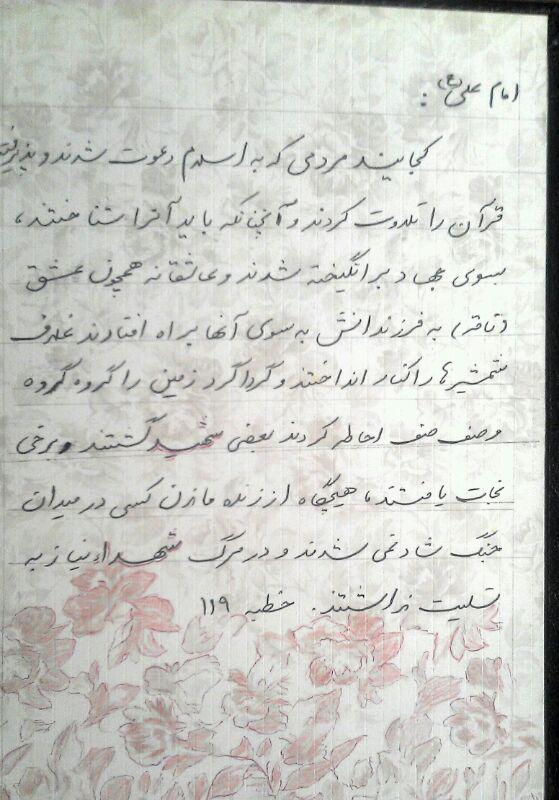 امام علی (ع) :
کجایند مردمی که به اسلام دعوت شدند و پذیرفتند
قرآن را تلاوت کردند و آنچنانکه باید آنرا شناختند ،
بسوی جهاد برانگیخته شدند و عاشقانه همچون عشق
(ناقه) به فرزندانش به سوی آنها براه افتادند غلاف
شمشیرها را کنار انداختند و گرداگرد زمین را گروه گروه
و صف صف احاطه کردند بعضی شهید گشتند و برخی
نجات یافتند ، هیچگاه از زنده ماندن کسی در میدان
جنگ شاد نمی شدند و در مرگ شهداء نیاز به
تسلیت نداشتند . خطبه ۱۱۹